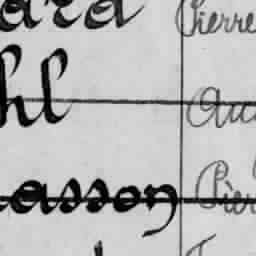 ard Pierre
hl Au
asson Pier